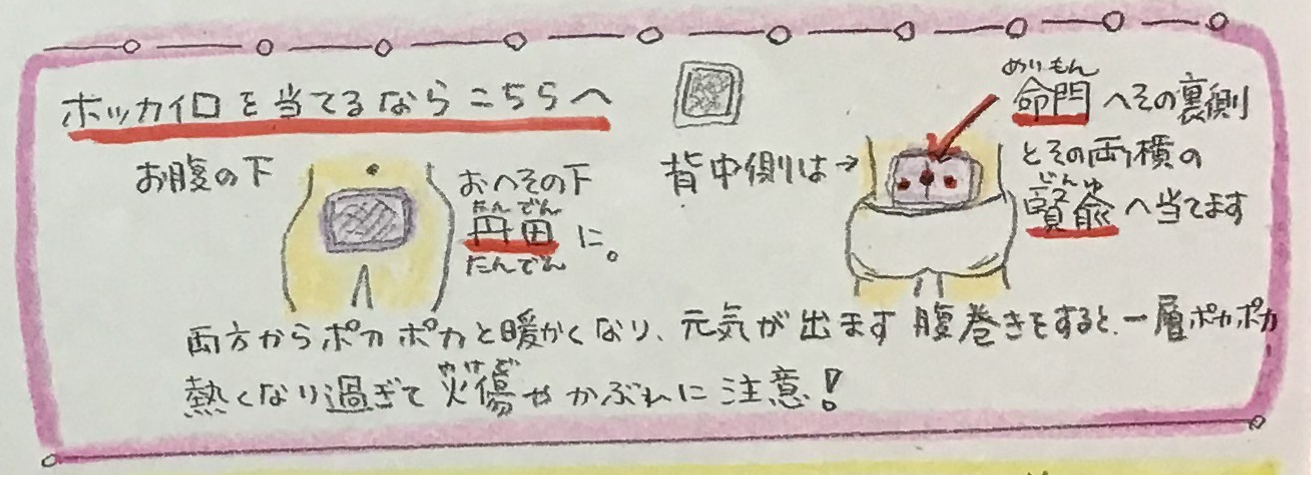 ホッカイロを当てるならこちらへ
お腹の下
おへその下
たんでん
丹田に。
たんでん
背中側は→
めいもん
命門へその裏側
とその両横の
じんゆ
腎兪へ当てます
両方からポカポカと暖かくなり、元気が出ます 腹巻きをすると、一層ポカポカ
熱くなり過ぎて火傷やかぶれに注意!
やけど